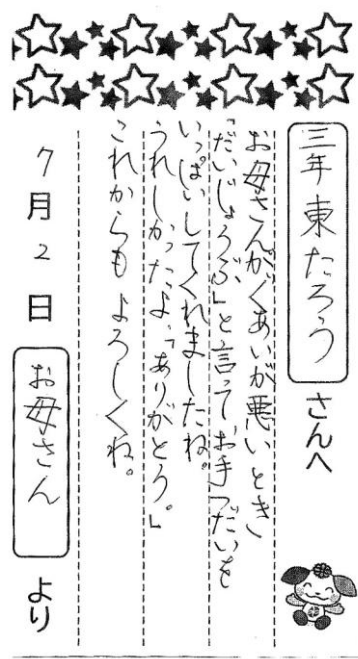 三年東たろう さんへ
お母さんがぐあいが悪いとき
「だいじょうぶ」と言ってお手つだいを
いっぱいしてくれましたね。
うれしかったよ。「ありがとう。」
これからもよろしくね。
7月2日 お母さん より